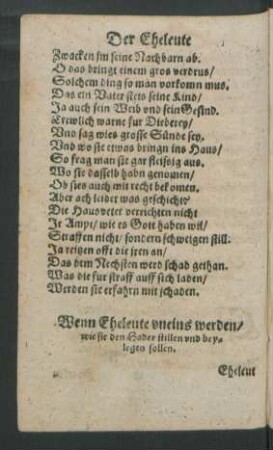 Der Eheleute
Zwacken jm seine Nachbarn ab.
O das bringt einem gros verdrus/
Solchem ding so man vorkomn mus.
Das ein Vater stets seine Kind/
Ja auch sein Weib vnd sein Gesind.
Trewlich warne fur Dieberey/
Vnd sag wies grosse Sünde sey.
Vnd wo sie etwas bringn ins Haus/
So frag man sie gar fleissig aus.
Wo sie dasselb habn genomen/
Ob sies auch mit recht bekomen.
Aber ach leider was geschicht/
Die Hausveter verrichten nicht
Jr Ampt/ wie es Gott haben wil/
Straffen nicht/ sondern schweigen still.
Ja reitzen offt die jren an/
Das dem Nechsten werd schad gethan.
Was die fur straff auff sich laden/
Werden sie erfahrn mit schaden.
Wenn Eheleute vneins werden/
wie sie den Hader stillen vnd bey-
legen sollen.
Eheleut